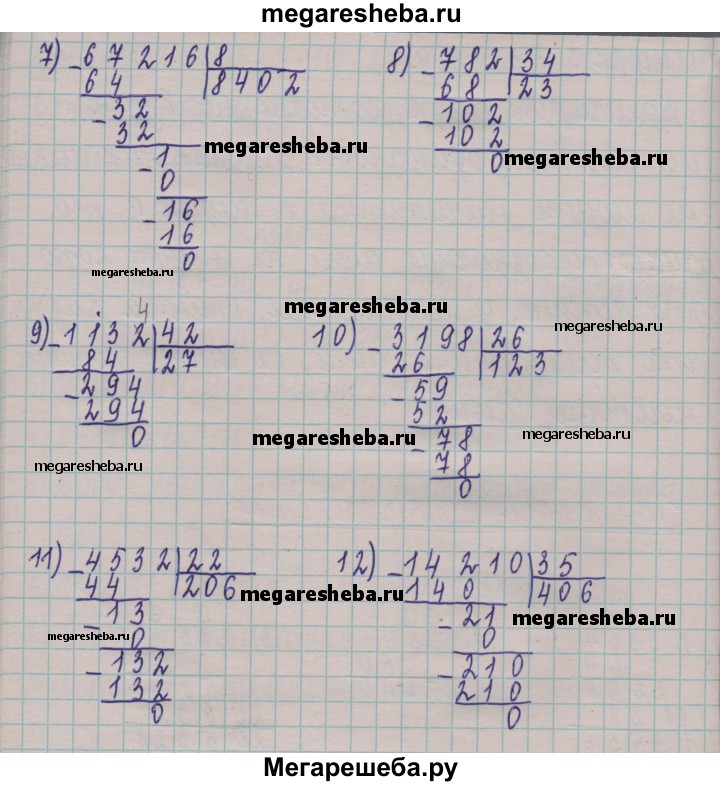 megaresheba.ru
7) - 67216 | 8
64 8402
- 32
32
megaresheba.ru
- 1
0
- 16
16
0
megaresheba.ru
8) - 782 | 34
68 23
- 102
102
0
megaresheba.ru
megaresheba.ru
4
9) - 1132 | 42
84 27
- 294
294
0
megaresheba.ru
megaresheba.ru
10) - 3198 | 26
26 123
- 59
52
- 78
78
0
megaresheba.ru
megaresheba.ru
11) - 4532 | 22
44 206
- 13
0
- 132
132
0
megaresheba.ru
megaresheba.ru
12) - 14210 | 35
140 406
- 21
0
- 210
210
0
megaresheba.ru
Мегарешеба.ру